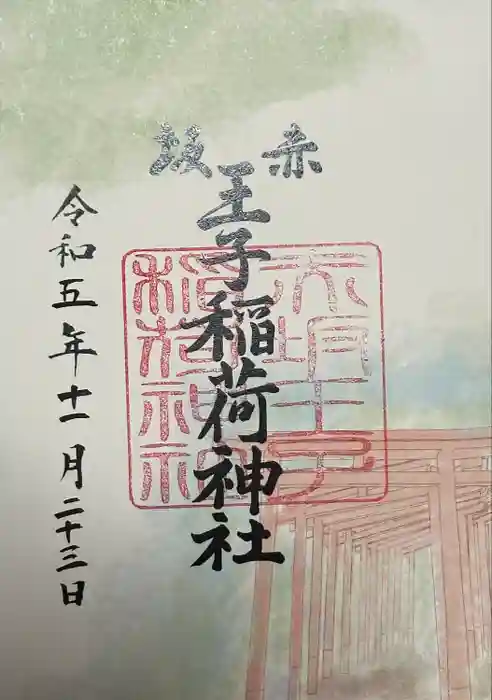 赤坂
王子稲荷神社
令和五年十一月二十三日
赤坂王子
稲荷神社